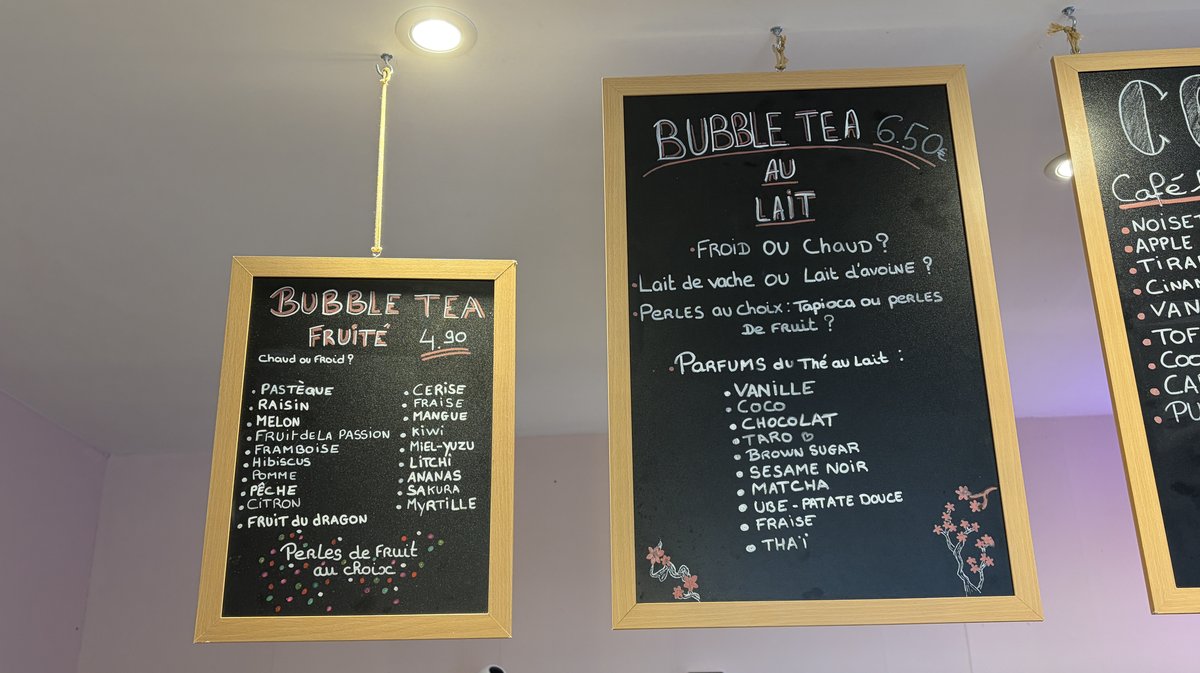 BUBBLE TEA
FRUITÉ 4.90
Chaud ou froid ?
PASTÈQUE
RAISIN
MELON
FRUIT DE LA PASSION
FRAMBOISE
HIBISCUS
POMME
PÊCHE
CITRON
FRUIT DU DRAGON
CERISE
FRAISE
MANGUE
KIWI
MIEL-YUZU
LITCHI
ANANAS
SAKURA
MYRTILLE
Perles de fruit
au choix
BUBBLE TEA 6.50€
AU
LAIT
FROID OU CHAUD ?
Lait de vache ou Lait d'avoine ?
PERLES au choix : Tapioca ou perles
De fruit ?
PARFUMS du Thé au Lait :
VANILLE
COCO
CHOCOLAT
TARO ♡
BROWN SUGAR
SESAME NOIR
MATCHA
UBE - PATATE DOUCE
FRAISE
THAÏ
Café
APPLE